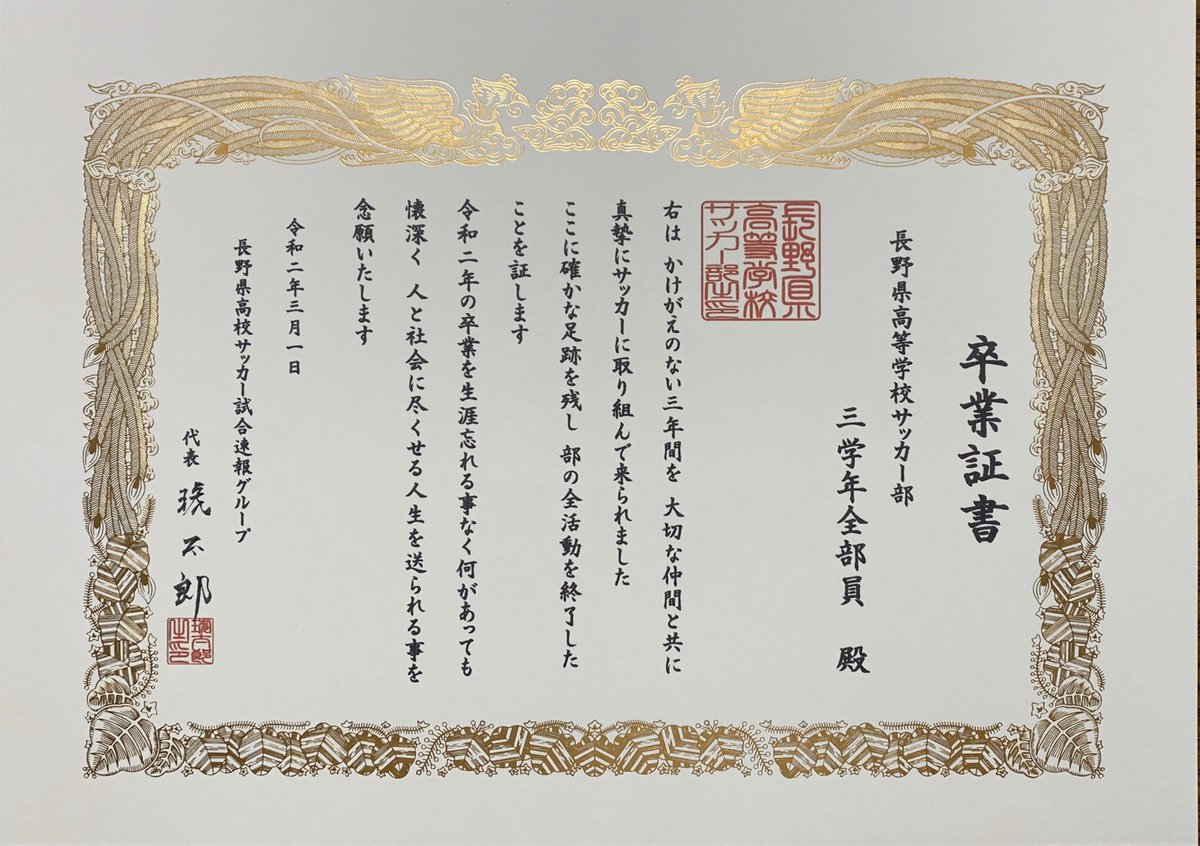 卒業証書
長野県高等学校サッカー部
三学年全部員 殿
長野県
高等学校
サッカー部之印
右は かけがえのない三年間を 大切な仲間と共に
真摯にサッカーに取り組んで来られました
ここに確かな足跡を残し 部の全活動を終了した
ことを証します
令和二年の卒業を生涯忘れる事なく何があっても
懐深く 人と社会に尽くせる人生を送られる事を
念願いたします
令和二年三月一日
長野県高校サッカー試合速報グループ
代表